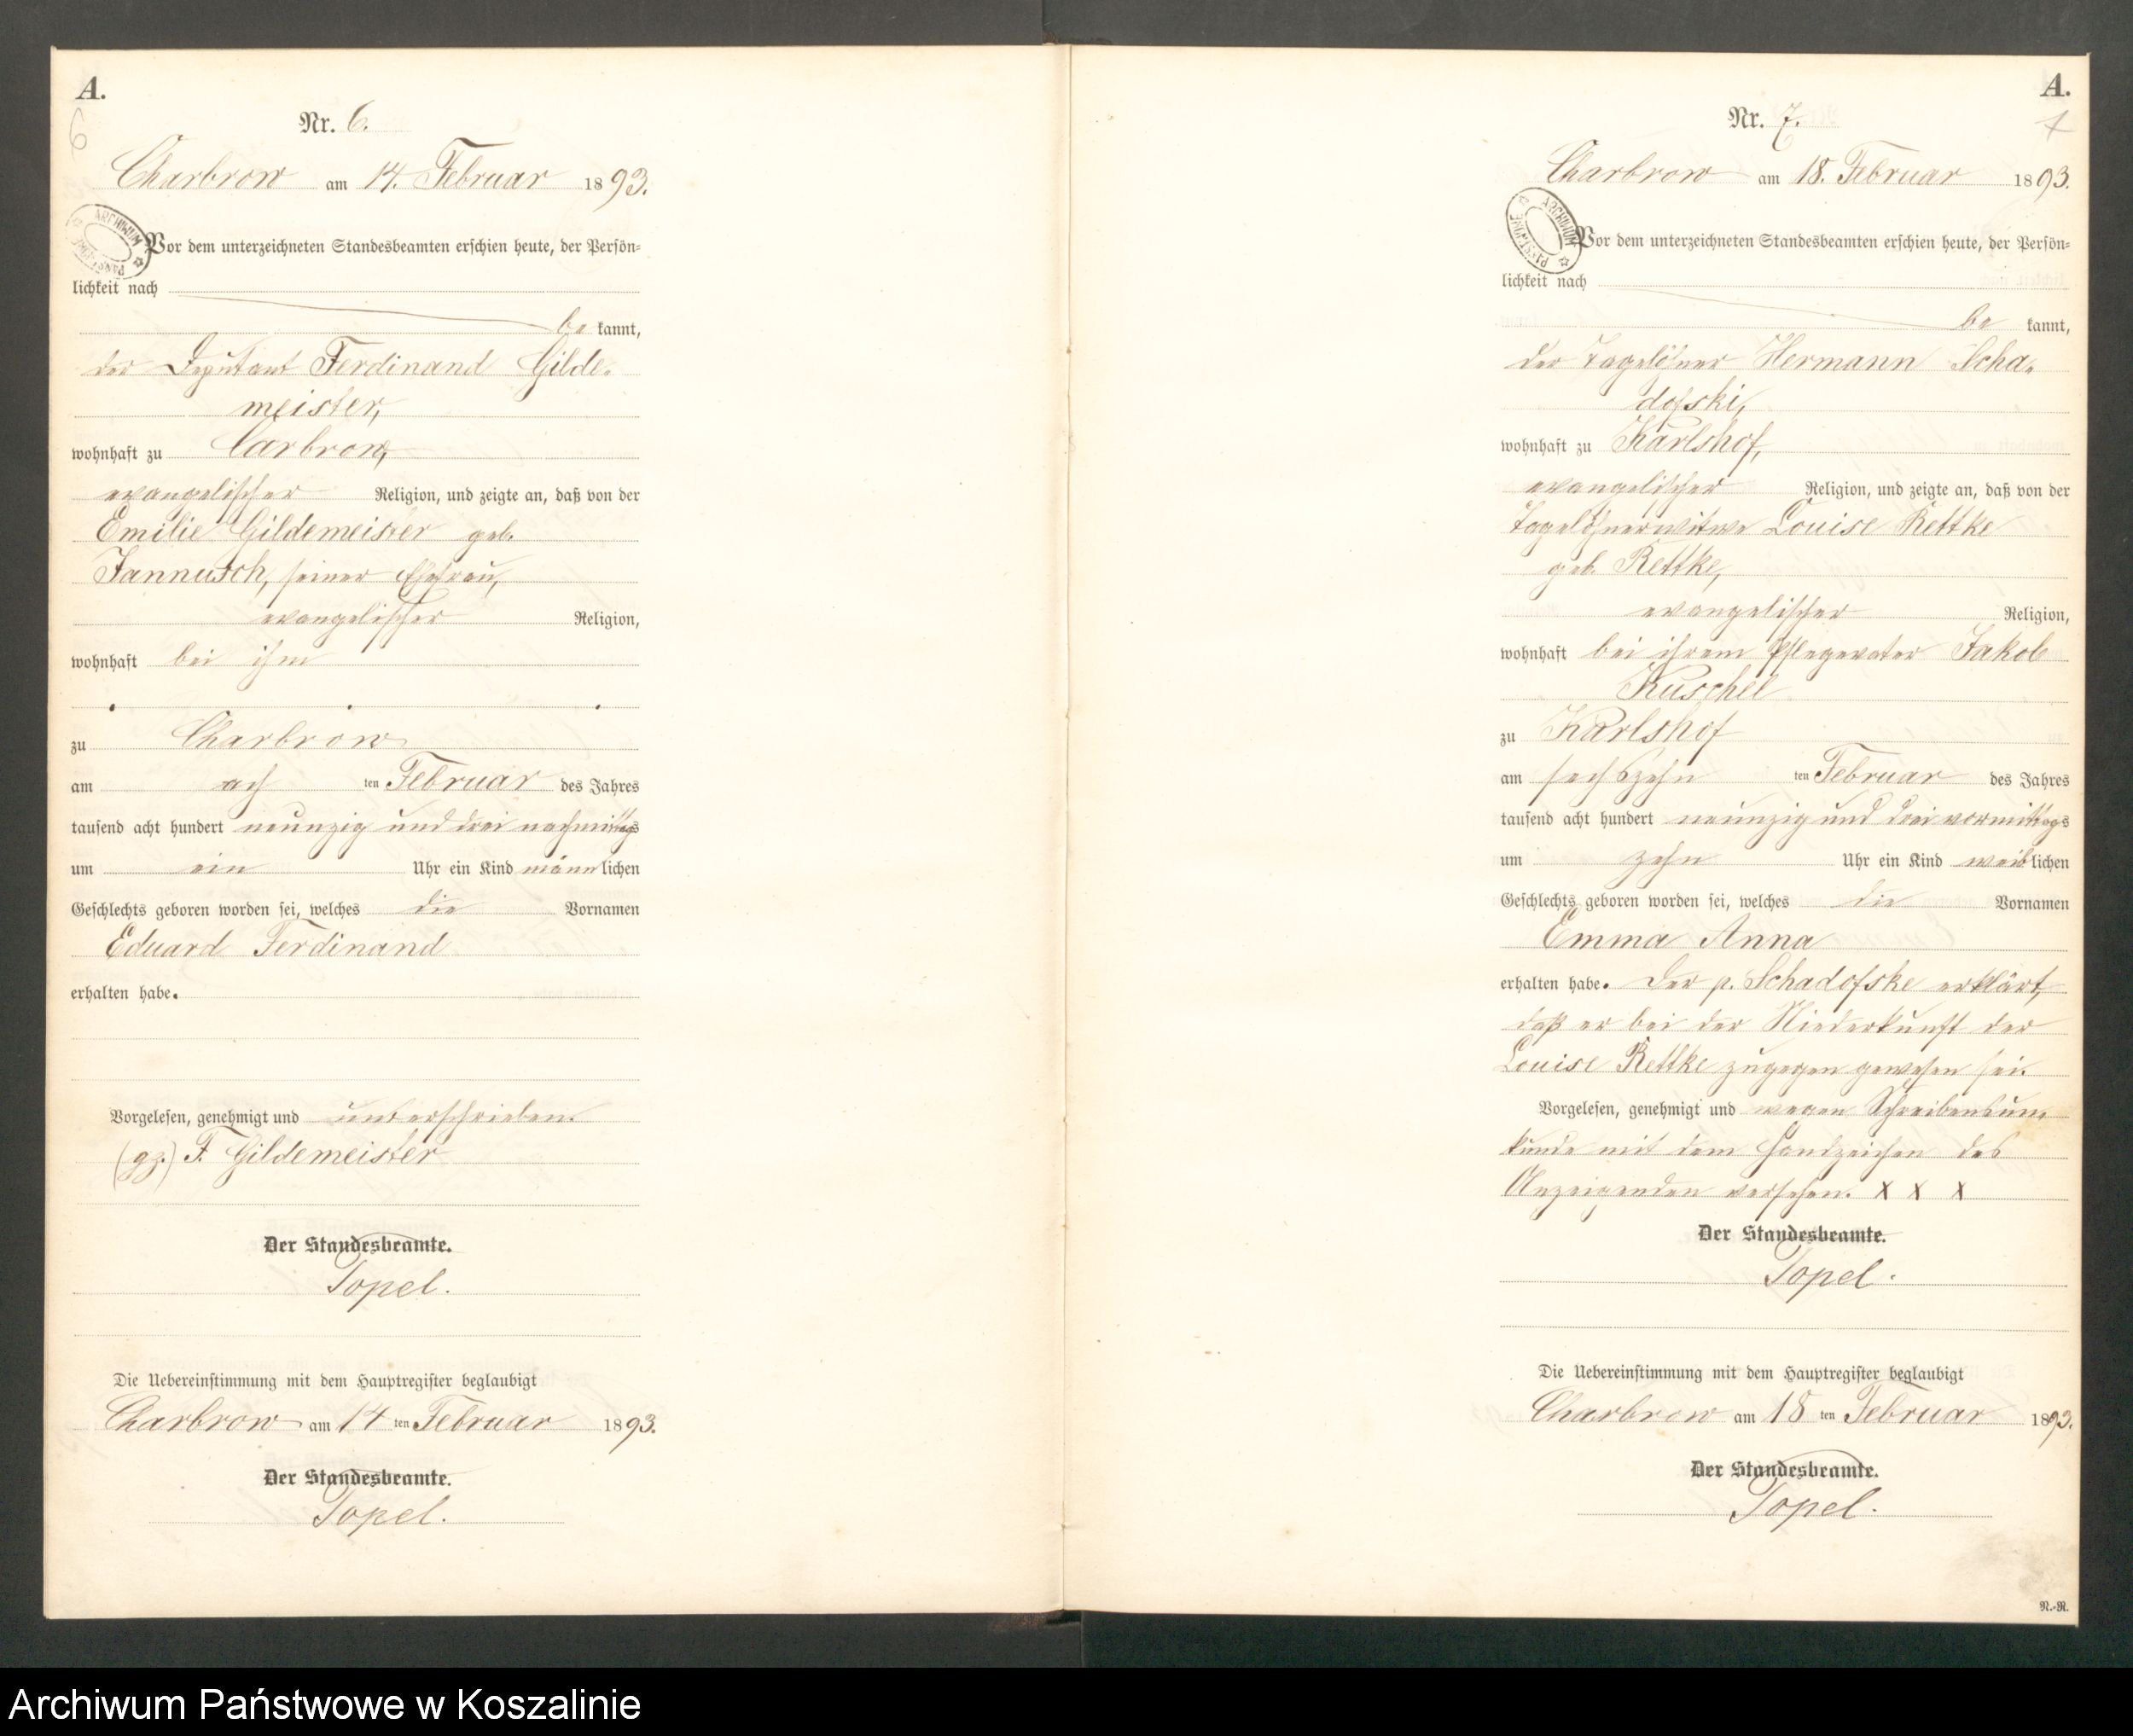 A.
6
Nr. 6.
Charbrow am 14. Februar 1893.
ARCHIWUM PAŃSTWOWE
Vor dem unterzeichneten Standesbeamten erschien heute, der Persön=
lichkeit nach
be kannt,
der Deputant Ferdinand Gilde-
meister,
wohnhaft zu Carbrow,
evangelischer Religion, und zeigte an, daß von der
Emilie Gildemeister geb.
Jannusch, seiner Ehefrau,
evangelischer Religion,
wohnhaft bei ihm
zu Charbrow
am ach ten Februar des Jahres
tausend acht hundert neunzig und drei nachmittags
um ein Uhr ein Kind männlichen
Geschlechts geboren worden sei, welches die Vornamen
Eduard Ferdinand
erhalten habe.
Vorgelesen, genehmigt und unterschrieben.
(gz.) F. Gildemeister
Der Standesbeamte.
Topel.
Die Uebereinstimmung mit dem Hauptregister beglaubigt
Charbrow am 14 ten Februar 1893.
Der Standesbeamte.
Topel.
A.
7
Nr. 7.
Charbrow am 18. Februar 1893.
ARCHIWUM PAŃSTWOWE
Vor dem unterzeichneten Standesbeamten erschien heute, der Persön=
lichkeit nach
be kannt,
der Tagelöhner Hermann Scha-
dofski,
wohnhaft zu Karlshof,
evangelischer Religion, und zeigte an, daß von der
Tagelöhnerwitwe Louise Rettke
geb. Rettke,
evangelischer Religion,
wohnhaft bei ihrem Pflegevater Jakob
Kuschel
zu Karlshof
am sechszehn ten Februar des Jahres
tausend acht hundert neunzig und drei vormittags
um zehn Uhr ein Kind weiblichen
Geschlechts geboren worden sei, welches die Vornamen
Emma Anna
erhalten habe. Der p. Schadofske erklärt,
daß er bei der Niederkunft der
Louise Rettke zugegen gewesen sei.
Vorgelesen, genehmigt und wegen Schreibensun-
kunde mit dem Handzeichen des
Anzeigenden versehen. X X X
Der Standesbeamte.
Topel.
Die Uebereinstimmung mit dem Hauptregister beglaubigt
Charbrow am 18 ten Februar 1893.
Der Standesbeamte.
Topel.
N.-R.
Archiwum Państwowe w Koszalinie